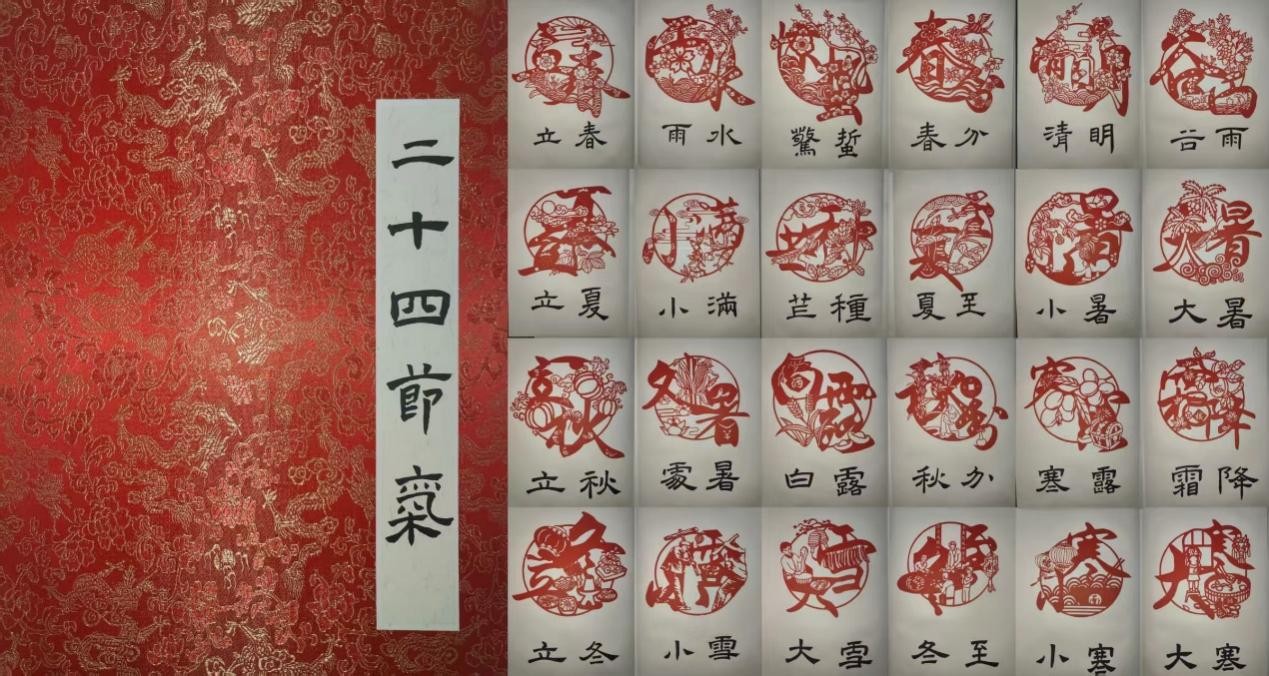 二十四節氣
立春
雨水
驚蟄
春分
清明
谷雨
立夏
小滿
芒種
夏至
小暑
大暑
立秋
處暑
白露
秋分
寒露
霜降
立冬
小雪
大雪
冬至
小寒
大寒